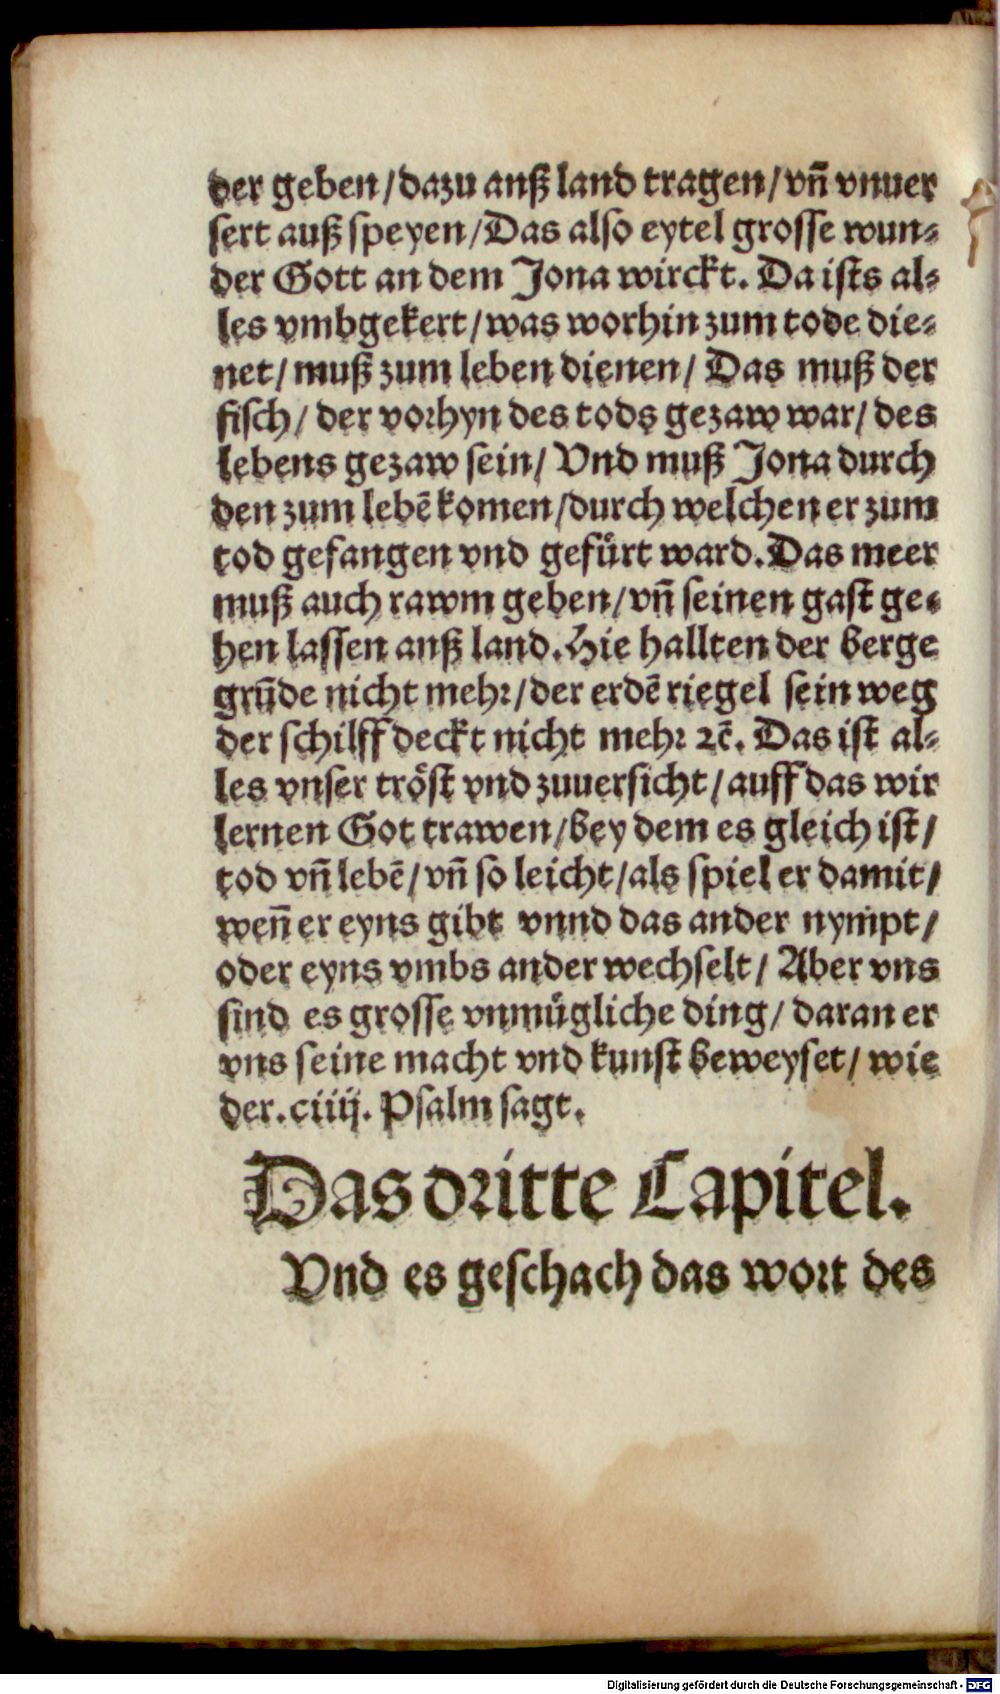 der geben/dazu anß land tragen/vñ vnuer
sert auß speyen/Das also eytel grosse wun⸗
der Gott an dem Jona wirckt. Da ists al⸗
les vmbgekert/was worhin zum tode die⸗
net/muß zum leben dienen/Das muß der
fisch/der vorhyn des tods gezaw war/des
lebens gezaw sein/Vnd muß Jona durch
den zum lebē komen/durch welchen er zum
tod gefangen vnd gefürt ward. Das meer
muß auch rawm geben/vñ seinen gast ge⸗
hen lassen anß land. Hie hallten der berge
grūde nicht mehr/der erdē riegel sein weg
der schilff deckt nicht mehr ꝛc̄. Das ist al⸗
les vnser tröst vnd zuuersicht/auff das wir
lernen Got trawen/bey dem es gleich ist/
tod vñ lebē/vñ so leicht/als spiel er damit/
weñ er eyns gibt vnnd das ander nympt/
oder eyns vmbs ander wechselt/Aber vns
sind es grosse vnmügliche ding/daran er
vns seine macht vnd kunst beweyset/wie
der.ciiij. Psalm sagt.
Das dritte Capitel.
Vnd es geschach das wort des
Digitalisierung gefördert durch die Deutsche Forschungsgemeinschaft - DFG